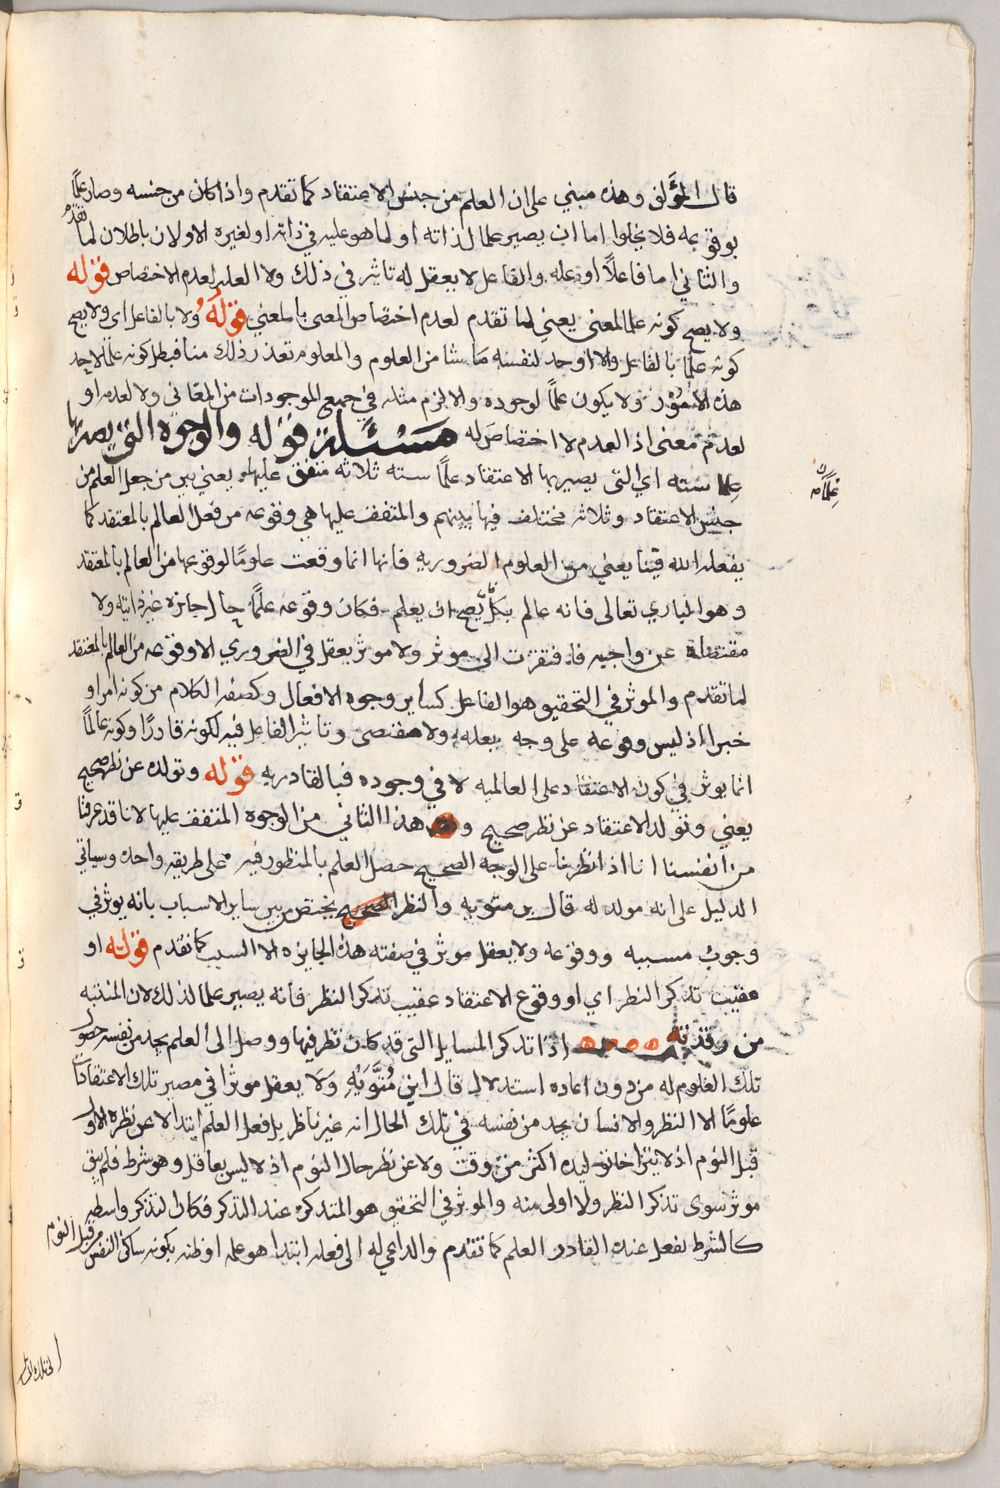 قال المؤلف وهذه مبني على ان العلم من جنس الاعتقاد كما تقدم واذا كان من جنسه وصار علمًا
بوقوعه فلا يخلوا اما ان يصير علما لذاته او لما هو عليه في ذاته او لغيره الاولان باطلان لما تقدم
والثاني اما فاعلًا او عله والفاعل لا يعقل له تاثير في ذلك ولا العله لعدم الاختصاص قوله
ولا يصح كونه علما لمعنى يعني لما تقدم لعدم اختصاص المعنى بالمعني قوله ولا بالفاعل اي ولا يصح
كونه علمًا بالفاعل والا اوجد لنفسه ما شا من العلوم والمعلوم تعذر ذلك منا فبطل كونه علمًا لاحد
هذه الامور ولا يكون علمًا لوجوده والا لزم مثله في جميع الموجودات من المعاني ولا لعدمه او
لعدم معنى اذ العدم لا اختصاص له مسئلة قوله والوجوه التي يصير بها
علما سته اي التي يصير بها الاعتقاد علمًا سته ثلاثه متفق عليها يعني بين من جعل العلم من
جنس الاعتقاد وثلاثه مختلف فيها بينهم والمتفق عليها هي وقوعه من فعل العالم بالمعتقد كما
يفعله الله فينا يعني من العلوم الضروريه فانها انما وقعت علومًا لوقوعها من العالم بالمعتقد
وهو الباري تعالى فانه عالم بكل يصح ان يعلم فكان وقوعه علمًا حال جايزه غير ذاتيه ولا
مقتضاة عن واجبه فافتقرت الى موثر ولا موثر يعقل في الضروري الا وقوعه من العالم بالمعتقد
لما تقدم والموثر في التحقيق هو الفاعل كساير وجوه الافعال وكصفه الكلام من كونه امرا او
خبرا اذ ليس وقوعه على وجه بعله ولا مقتضى وتاثير الفاعل فيه لكونه قادرًا وكونه عالمًا
انما يوثر في كون الاعتقاد على العالميه لا في وجوده فبالقادريه قوله وتولده عن نظر صحيح
يعني وتولد الاعتقاد عن نظر صحيح وهو هذا الثاني من الوجوه المتفق عليها لانا قد عرفنا
من انفسنا انا اذا نظرنا على الوجه الصحيح حصل العلم بالمنظور فيه على طريقه واحده وسياتي
الدليل على انه مولد له قال بن متويه والنظر الصحيح يختص من بين ساير الاسباب بانه يوثر في
وجوب مسببه ووقوعه ولا يعقل موثر في صفته هذه الجايزه الا السبب كما تقدم قوله او
عقيب تذكر النظر اي او وقوع الاعتقاد عقيب تذكر النظر فانه يصير علما لذلك لان المنتبه
من رقدته اذا تذكر المسايل التي قد كان نظر فيها ووصل الى العلم يجد من نفسه حصول
تلك العلوم له من دون اعاده استدلال قال ابن مُتَّوَيْهِ ولا يعقل موثرا في مصير تلك الاعتقادات
علومًا الا النظر والانسان يجد من نفسه في تلك الحال انه غير ناظر بل فعل العلم ابتدا لا عن نظره الاول
قبل النوم اذ لا يتراخا توليده اكثر من وقت ولا عن نظر حال النوم اذ لا ليس بعاقل وهو شرط فلم يبق
موثر سوى تذكر النظر ولا اولى منه والموثر في التحقيق هو المتذكر عند التذكر فكان التذكر واسطه
كالشرط لفعل عنده القادر العلم كما تقدم والداعي له الى فعله ابتدا هو علمه او ظنه بكونه ساكن النفس من قبل النوم
علمًا